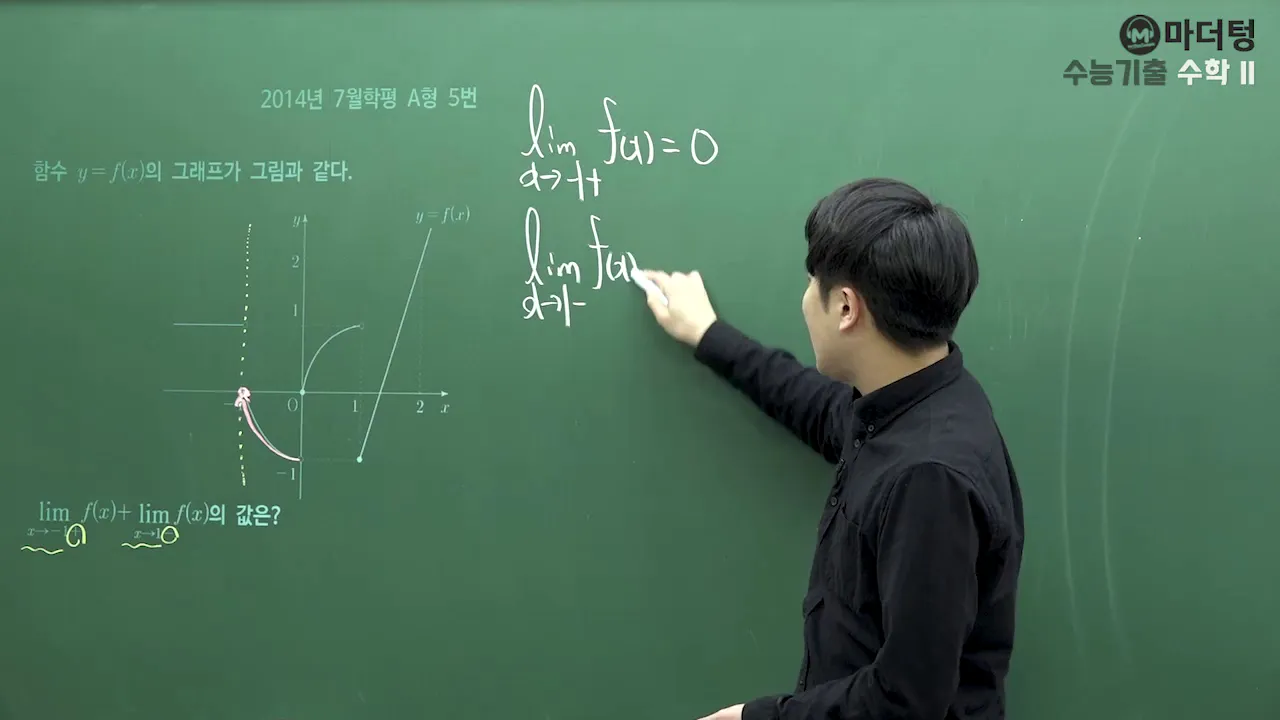 마더텅
수능기출 수학 II
2014년 7월학평 A형 5번
함수 y=f(x)의 그래프가 그림과 같다.
y
y=f(x)
2
1
O 1 2 x
-1
lim f(x)+ lim f(x)의 값은?
x→-1+ x→1-
lim f(x)=0
x→-1+
lim f(x)
x→1-